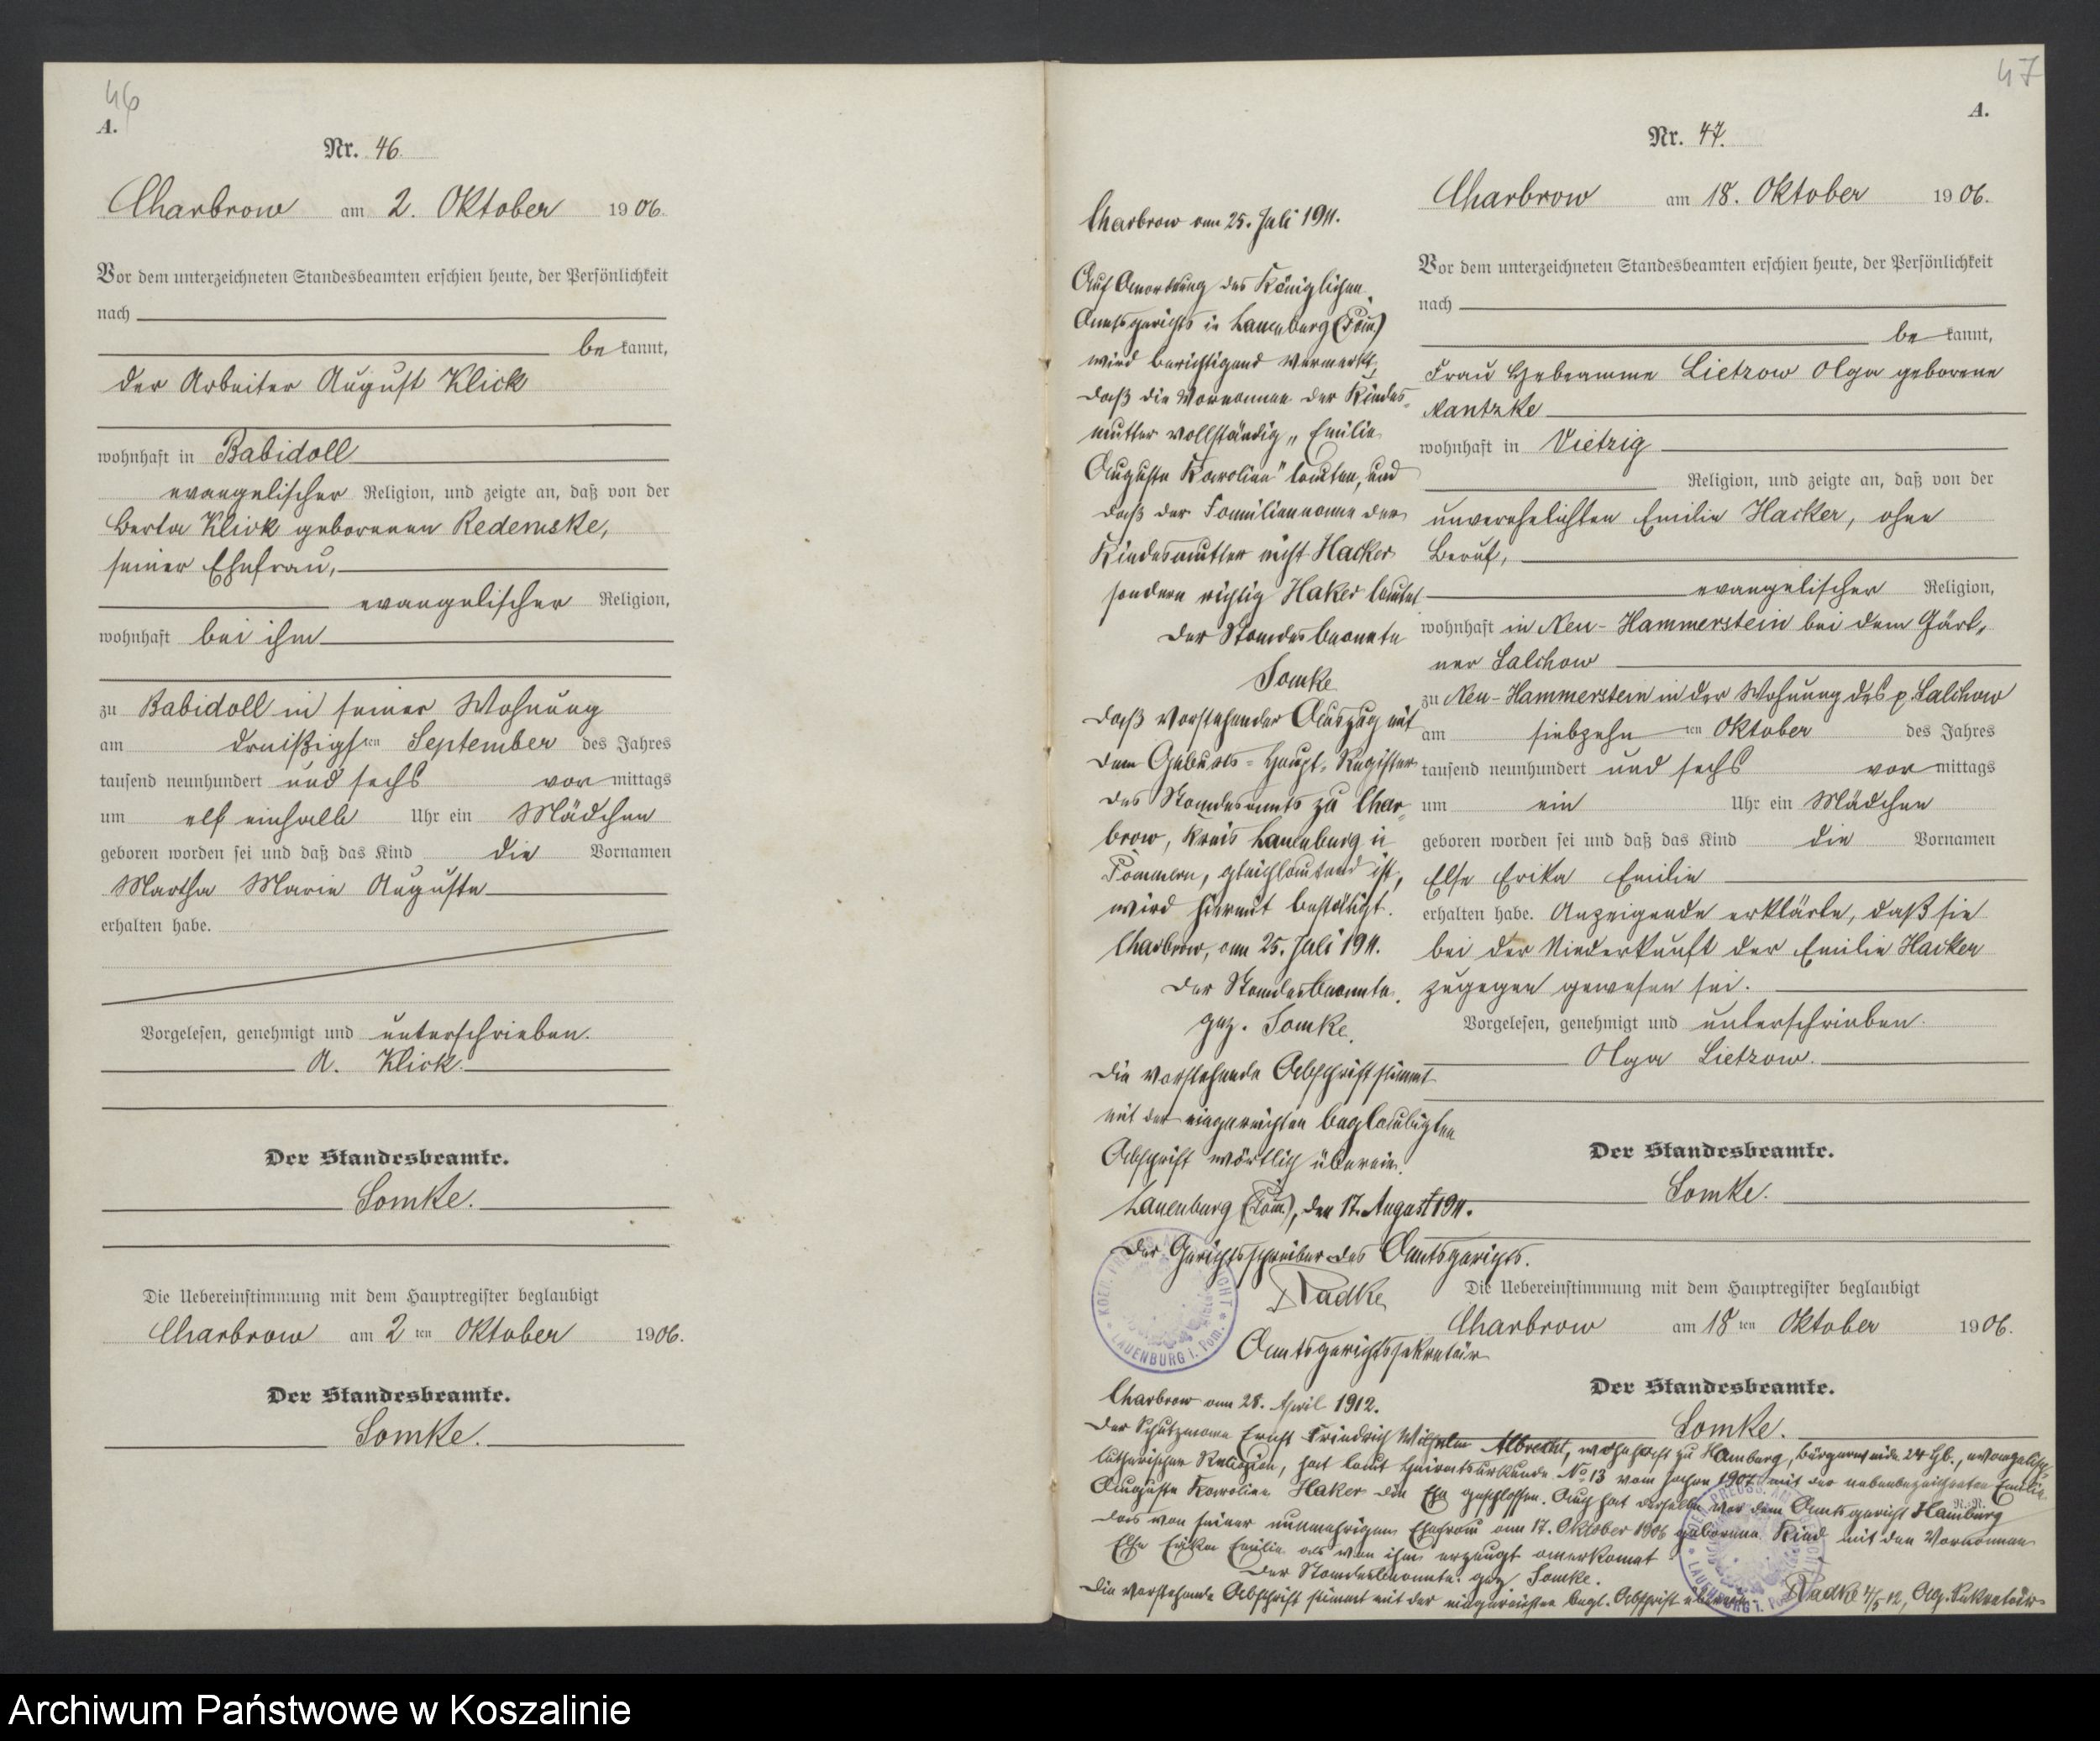 46
A.
Nr. 46.
Charbrow am 2. Oktober 1906.
Vor dem unterzeichneten Standesbeamten erschien heute, der Persönlichkeit
nach
bekannt,
der Arbeiter August Klick
wohnhaft in Babidoll
evangelischer Religion, und zeigte an, daß von der
Berta Klick geborenen Redemske,
seiner Ehefrau,
evangelischer Religion,
wohnhaft bei ihm
zu Babidoll in seiner Wohnung
am dreißigsten September des Jahres
tausend neunhundert und sechs vormittags
um elf einhalb Uhr ein Mädchen
geboren worden sei und daß das Kind die Vornamen
Martha Marie Auguste
erhalten habe.
Vorgelesen, genehmigt und unterschrieben.
A. Klick.
Der Standesbeamte.
Somke.
Die Uebereinstimmung mit dem Hauptregister beglaubigt
Charbrow am 2ten Oktober 1906.
Der Standesbeamte.
Somke.
47
A.
Nr. 47.
Charbrow am 18. Oktober 1906.
Vor dem unterzeichneten Standesbeamten erschien heute, der Persönlichkeit
nach
bekannt,
Frau Hebeamme Lietzow Olga geborene
Mantzke
wohnhaft in Vietzig
Religion, und zeigte an, daß von der
unverehelichten Emilie Hacker, ohne
Beruf,
evangelischer Religion,
wohnhaft in Neu-Hammerstein bei dem Gärt-
ner Salchow
zu Neu-Hammerstein in der Wohnung des p. Salchow
am siebzehnten Oktober des Jahres
tausend neunhundert und sechs vormittags
um ein Uhr ein Mädchen
geboren worden sei und daß das Kind die Vornamen
Else Erika Emilie
erhalten habe. Anzeigende erklärte, daß sie
bei der Niederkunft der Emilie Hacker
zugegen gewesen sei.
Vorgelesen, genehmigt und unterschrieben.
Olga Lietzow.
Der Standesbeamte.
Somke.
Die Uebereinstimmung mit dem Hauptregister beglaubigt
Charbrow am 18ten Oktober 1906.
Der Standesbeamte.
Somke.
Charbrow am 25. Juli 1911.
Auf Anordnung des Königlichen
Amtsgerichts in Lauenburg (Pom.)
wird berichtigend vermerkt,
daß die Vornamen der Kindes-
mutter vollständig „Emilie
Auguste Karoline" lauten, und
daß der Familienname der
Kindesmutter nicht Hacker
sondern richtig Haker lautet
Der Standesbeamte
Somke
Daß vorstehender Auszug mit
dem Geburts-Haupt-Register
des Standesamts zu Char-
brow, Kreis Lauenburg in
Pommern, gleichlautend ist,
wird hiermit bestätigt.
Charbrow, am 25. Juli 1911.
Der Standesbeamte.
gez. Somke.
Die vorstehende Abschrift stimmt
mit der eingereichten beglaubigten
Abschrift wörtlich überein.
Lauenburg (Pom.), den 17. August 1911.
Der Gerichtsschreiber des Amtsgerichts.
Radke
Amtsgerichtssekretär
LAUENBURG i. Pom.
Charbrow am 28. April 1912.
Der Schutzmann Ernst Friedrich Wilhelm Albrecht, wohnhaft zu Hamburg, Bürgerweide 24 Hb., evangelisch-
lutherischer Religion, hat laut Heiratsurkunde No 13 vom Jahre 1907 mit der nebenbezeichneten Emilie
Auguste Karoline Haker die Ehe geschlossen. Auch hat derselbe vor dem Amtsgericht Hamburg
das von seiner nunmehrigen Ehefrau am 17. Oktober 1906 geborene Kind mit den Vornamen
Else Erika Emilie als von ihm erzeugt anerkannt
Der Standesbeamte. gez. Somke.
Die vorstehende Abschrift stimmt mit der eingereichten begl. Abschrift überein. Radke 4/5 12, Ag. Sekretär
Archiwum Państwowe w Koszalinie